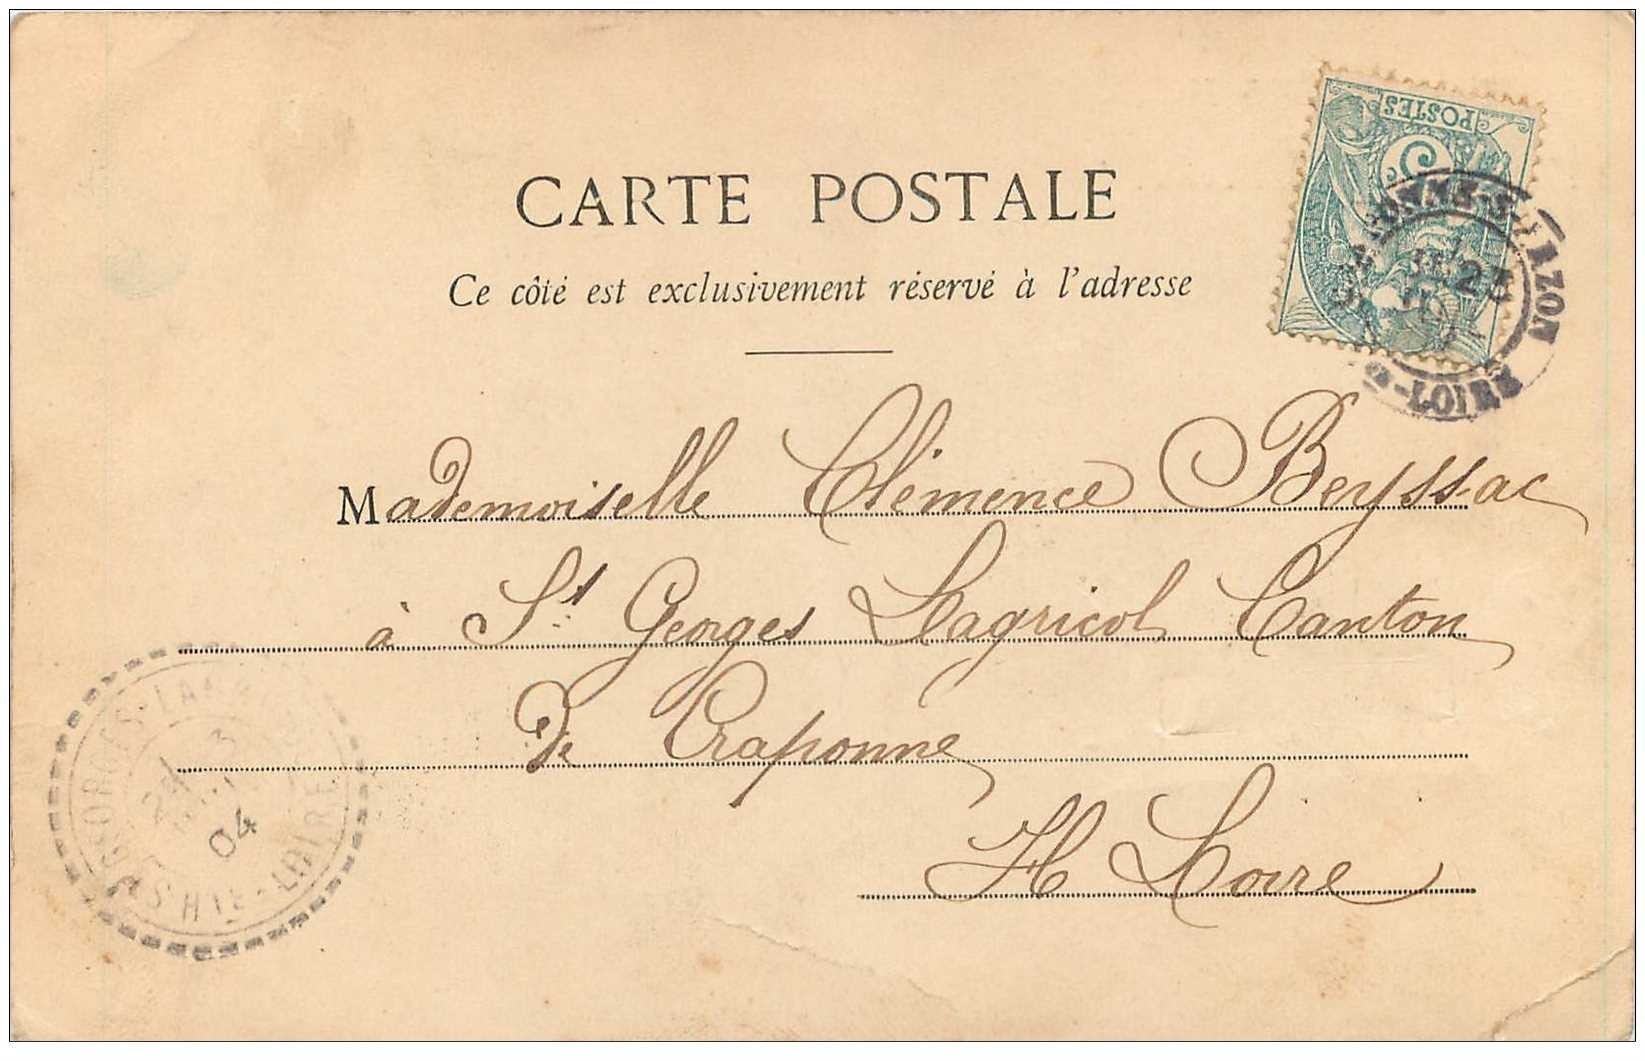 POSTES
5
CARTE POSTALE
Ce côté est exclusivement réservé à l'adresse
25
-LOIRE
Mademoiselle Clémence Beyssac
à St Georges Lagricol Canton
de Craponne
H Loire
04
HTE-LOIRE